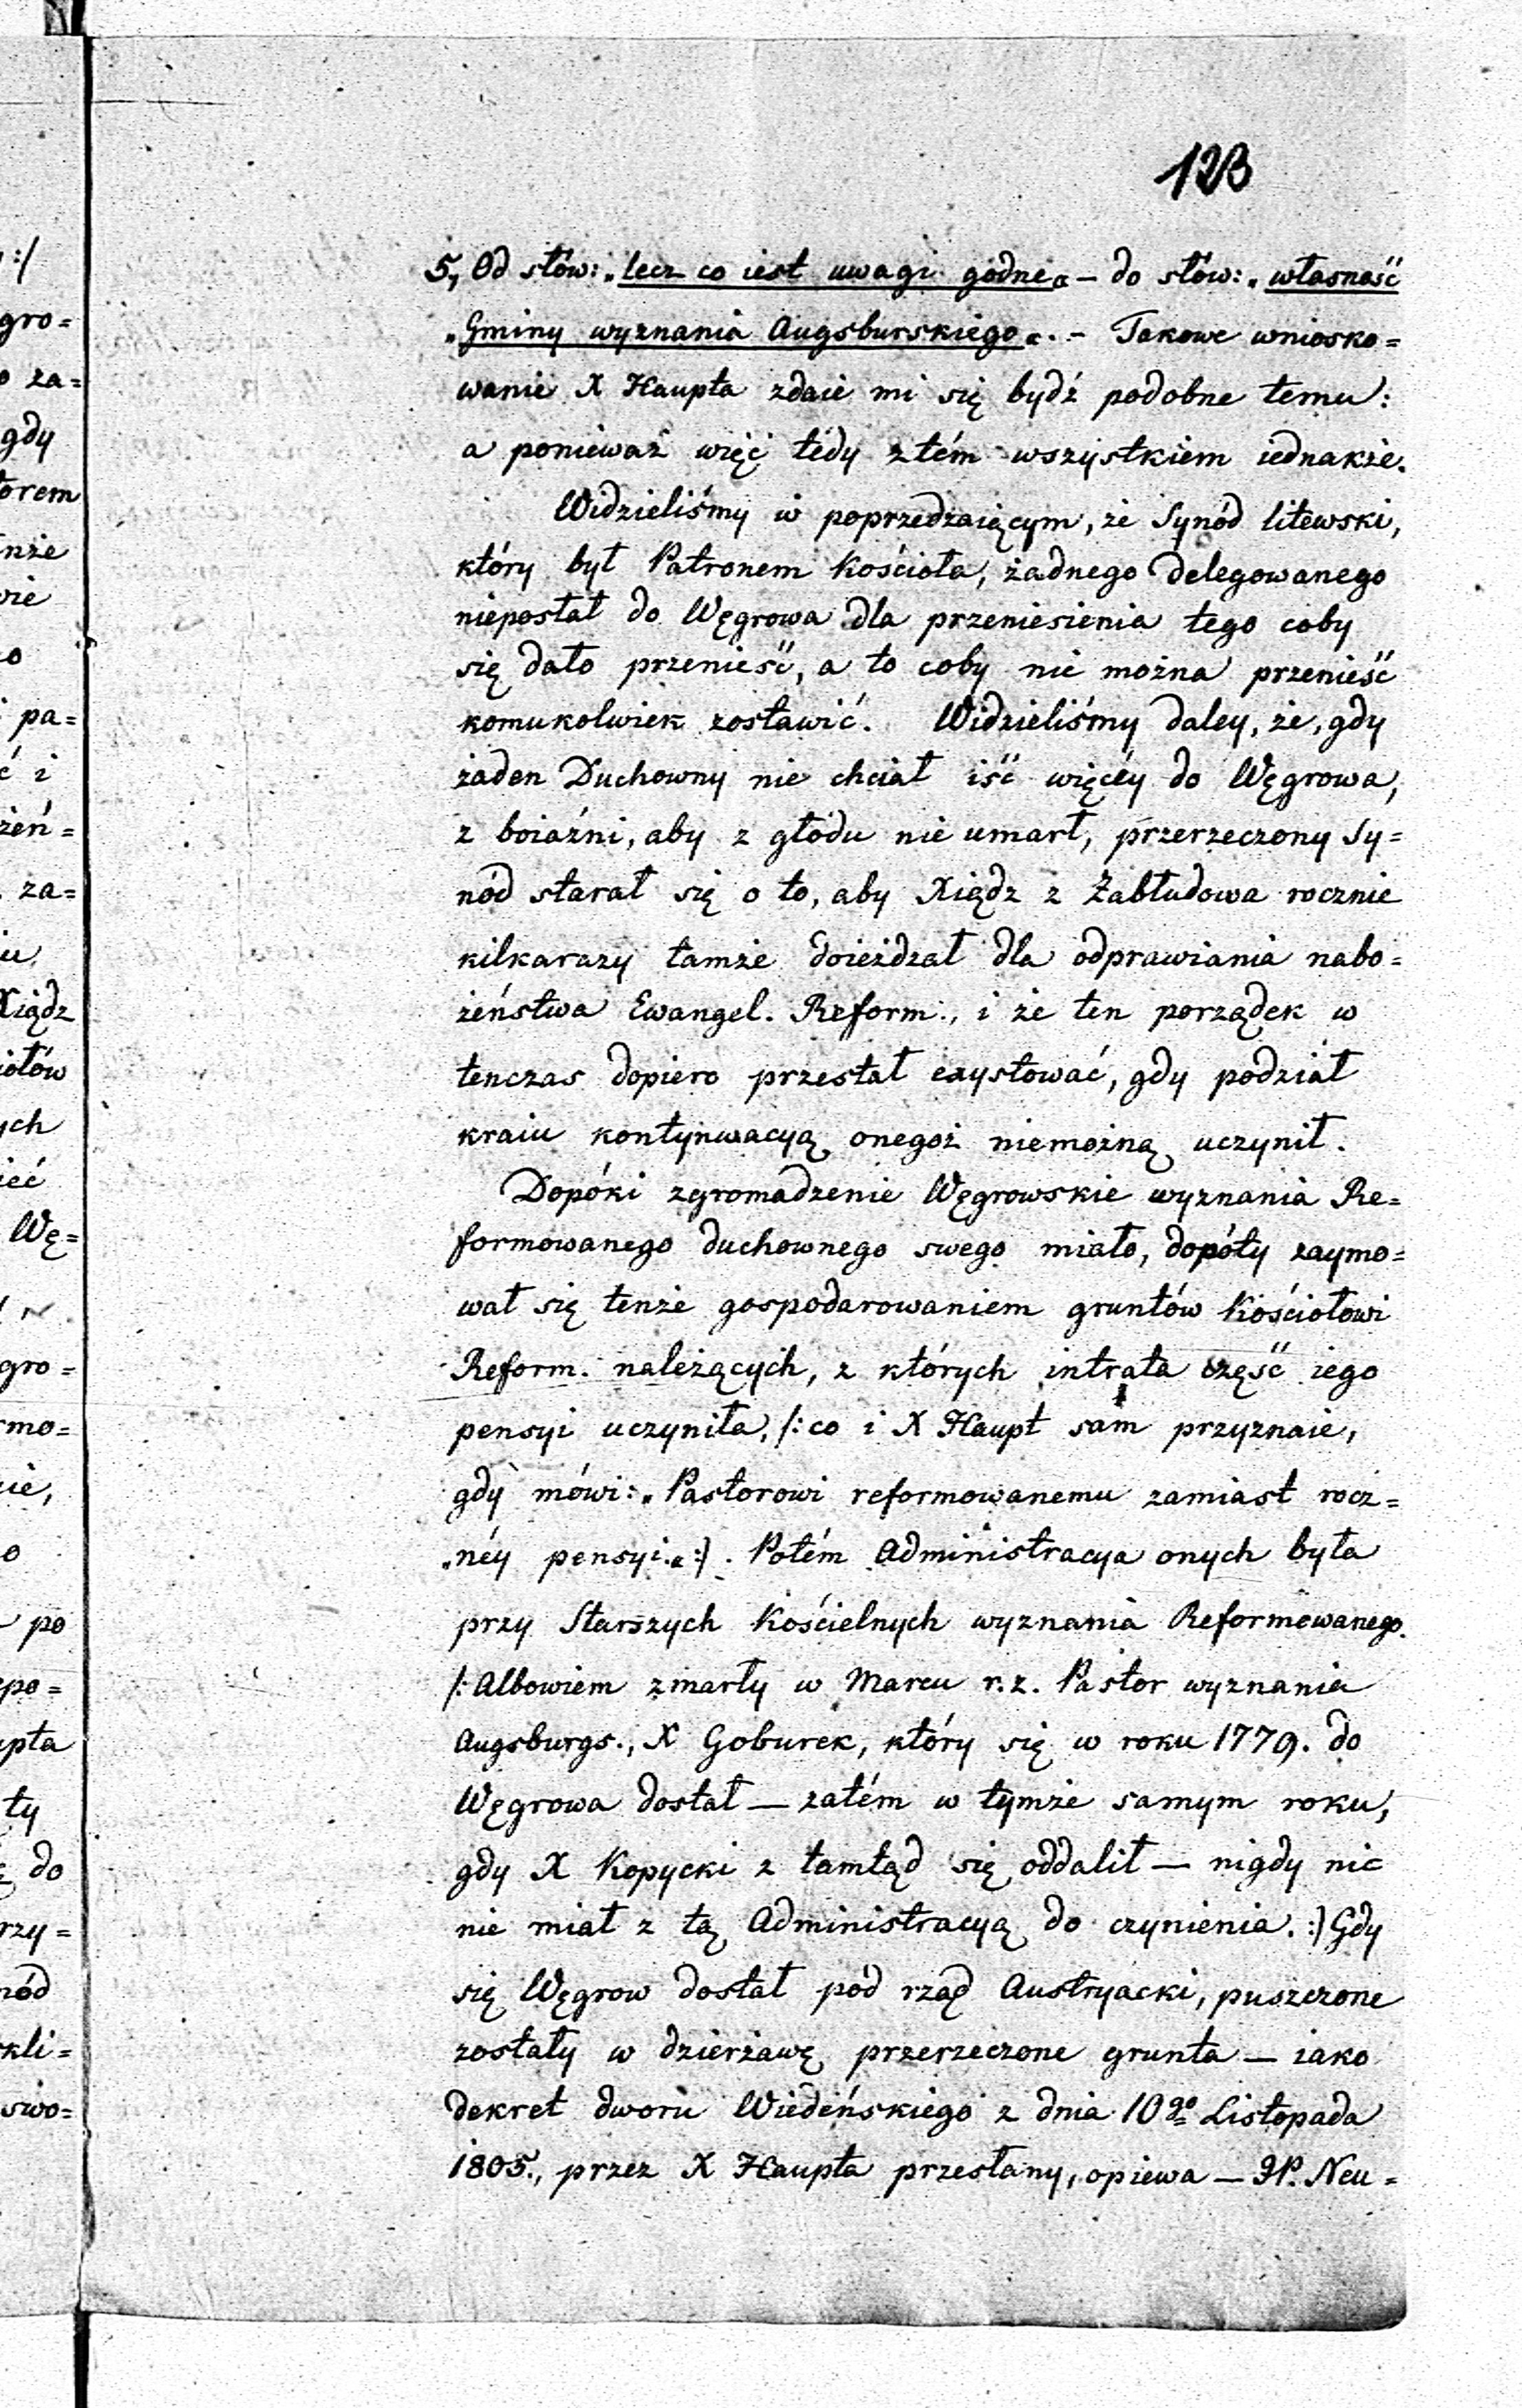 123
5, Od słów: „lecz co iest uwagi godne„ – do słów: „własność
„Gminy wyznania Augsburskiego„. – Takowe wniosko=
wanie X Haupta zdaie mi się bydź podobne temu:
a ponieważ więc tedy ztém wszystkiem iednakże.
Widzieliśmy w poprzedzaiącym, że Synód litewski,
który był Patronem Kościoła, żadnego Delegowanego
nieposłał do Węgrowa dla przeniesienia tego coby
się dało przenieść, a to coby nie można przenieść
komukolwiek zostawić. Widzieliśmy daley, że, gdy
żaden Duchowny nie chciał iść więcéy do Węgrowa,
z boiaźni, aby z głodu nie umarł, przerzeczony Sy=
nód starał się o to, aby Xiądz z Zabłudowa rocznie
kilkarazy tamże doieżdzał dla odprawiania nabo=
żeństwa Ewangel. Reform., i że ten porządek w
tenczas dopiero przestał exystować, gdy podział
kraiu kontynwacyą onegoż niemożną uczynił.
Dopóki zgromadzenie Węgrowskie wyznania Re=
formowanego duchownego swego miało, dopóty zaymo=
wał się tenże gospodarowaniem gruntów Kościołowi
Reform. należących, z których intrata część iego
pensyi uczyniła, /: co i X Haupt sam przyznaie,
gdy mówi: „Pastorowi reformowanemu zamiast rocz=
„néy pensyi.„ :/. Potém Administracya onych była
przy Starszych Kościelnych wyznania Reformowanego.
/: Albowiem zmarły w Marcu r. z. Pastor wyznania
Augsburgs., X Goburek, który się w roku 1779. do
Węgrowa dostał — zatém w tymże samym roku,
gdy X Kopycki z tamtąd się oddalił — nigdy nic
nie miał z tą Administracyą do czynienia. :/ Gdy
się Węgrow dostał pod rząd Austryacki, puszczone
zostały w dzierżawę przerzeczone grunta — iako
dekret dworu Wiedeńskiego z dnia 10go Listopada
1805., przez X Haupta przesłany, opiewa — JP. Neu=